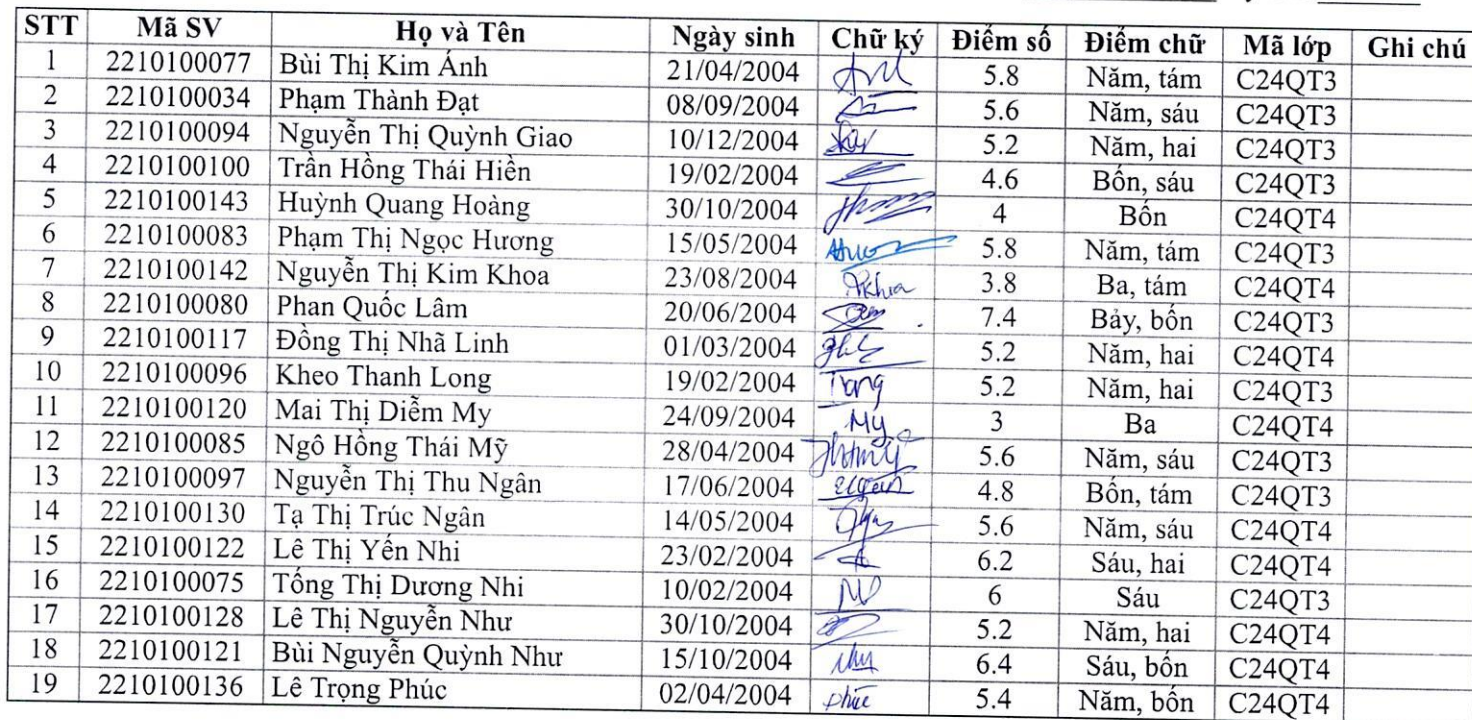 STT Mã SV Họ và Tên Ngày sinh Chữ ký Điểm số Điểm chữ Mã lớp Ghi chú
1 2210100077 Bùi Thị Kim Ánh 21/04/2004 5.8 Năm, tám C24QT3
2 2210100034 Phạm Thành Đạt 08/09/2004 5.6 Năm, sáu C24QT3
3 2210100094 Nguyễn Thị Quỳnh Giao 10/12/2004 5.2 Năm, hai C24QT3
4 2210100100 Trần Hồng Thái Hiền 19/02/2004 4.6 Bốn, sáu C24QT3
5 2210100143 Huỳnh Quang Hoàng 30/10/2004 4 Bốn C24QT4
6 2210100083 Phạm Thị Ngọc Hương 15/05/2004 5.8 Năm, tám C24QT3
7 2210100142 Nguyễn Thị Kim Khoa 23/08/2004 3.8 Ba, tám C24QT4
8 2210100080 Phan Quốc Lâm 20/06/2004 7.4 Bảy, bốn C24QT3
9 2210100117 Đồng Thị Nhã Linh 01/03/2004 5.2 Năm, hai C24QT4
10 2210100096 Kheo Thanh Long 19/02/2004 5.2 Năm, hai C24QT3
11 2210100120 Mai Thị Diễm My 24/09/2004 My 3 Ba C24QT4
12 2210100085 Ngô Hồng Thái Mỹ 28/04/2004 5.6 Năm, sáu C24QT3
13 2210100097 Nguyễn Thị Thu Ngân 17/06/2004 4.8 Bốn, tám C24QT3
14 2210100130 Tạ Thị Trúc Ngân 14/05/2004 5.6 Năm, sáu C24QT4
15 2210100122 Lê Thị Yến Nhi 23/02/2004 6.2 Sáu, hai C24QT4
16 2210100075 Tống Thị Dương Nhi 10/02/2004 6 Sáu C24QT3
17 2210100128 Lê Thị Nguyễn Như 30/10/2004 5.2 Năm, hai C24QT4
18 2210100121 Bùi Nguyễn Quỳnh Như 15/10/2004 6.4 Sáu, bốn C24QT4
19 2210100136 Lê Trọng Phúc 02/04/2004 Phúc 5.4 Năm, bốn C24QT4